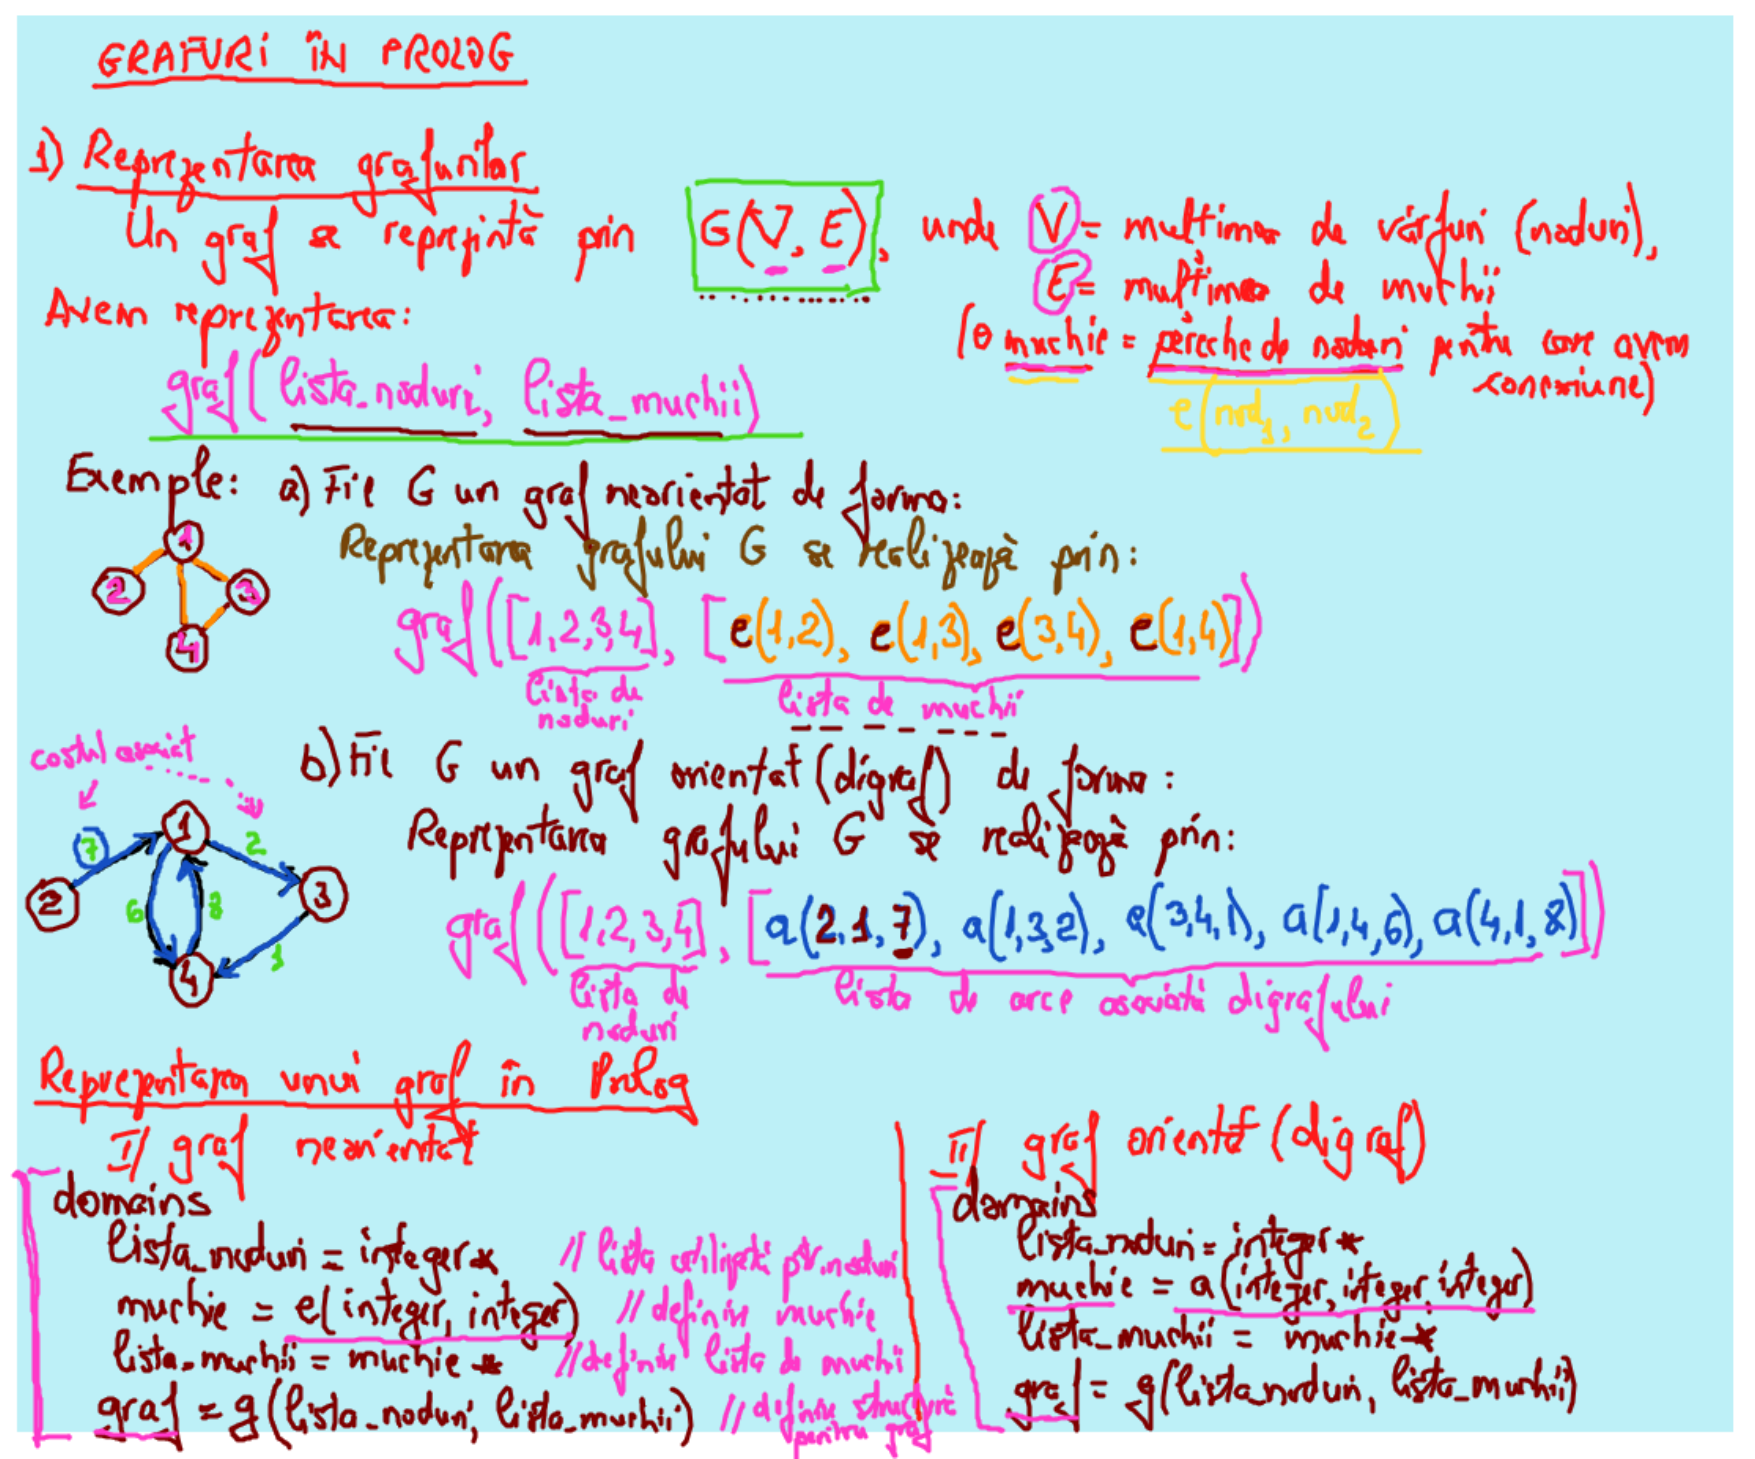 GRAFURI ÎN PROLOG
1) Reprezentarea grafurilor
Un graf se reprezintă prin G(V, E), unde V = multimea de vârfuri (noduri),
E = multimea de muchii
(o muchie = pereche de noduri pentru care avem
conexiune)
e(nod1, nod2)
Avem reprezentarea:
graf(lista_noduri, lista_muchii)
Exemple: a) Fie G un graf neorientat de forma:
Reprezentarea grafului G se realizează prin:
1
2
3
4
graf([1,2,3,4], [e(1,2), e(1,3), e(3,4), e(1,4)])
lista de
noduri
lista de muchii
costul asociat
b) Fie G un graf orientat (digraf) de forma:
Reprezentarea grafului G se realizează prin:
1
7
2
2
3
6
8
1
4
graf(([1,2,3,4], [a(2,1,7), a(1,3,2), a(3,4,1), a(1,4,6), a(4,1,8)]))
lista de
noduri
lista de arce asociată digrafului
Reprezentarea unui graf în Prolog
I/ graf neorientat
domains
lista_noduri = integer* // lista utilizată ptr. noduri
muchie = e(integer, integer) // definire muchie
lista_muchii = muchie* // definire lista de muchii
graf = g(lista_noduri, lista_muchii) // definire structură
pentru graf
II/ graf orientat (digraf)
domains
lista_noduri = integer*
muchie = a(integer, integer, integer)
lista_muchii = muchie*
graf = g(lista_noduri, lista_muchii)